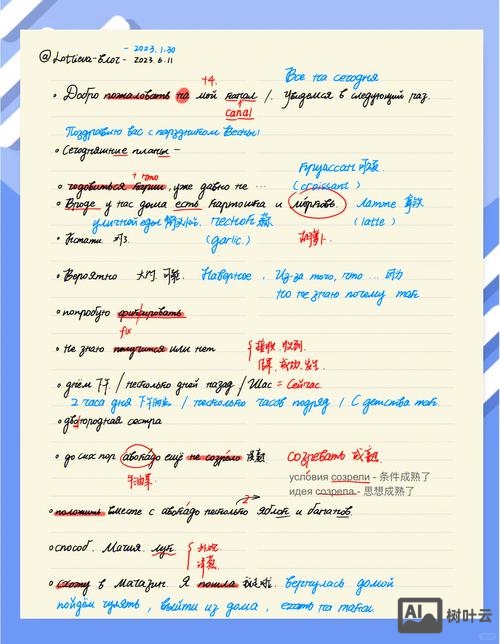 - 2023.1.30
@Lottieva-Влог- 2023.6.11
+4.
Все на сегодня
• Добро пожаловать на мой канал /. Увидемся в следующий раз.
canal
Поздравлю вас с праздником Весны!
• Сегодняшние планы -
+ что
Круассан 可颂
• годовиться , уже давно не ...
(croissant)
• Вроде у нас дома есть картошка и морковь. Латте 拿铁
уличной еды чеснок 蒜 (latte)
• Кстати 对了 (garlic) 胡萝卜
• Вероятно 大门 可能 Наверное , Из-за того, что ... 因为
Но не знаю почему так
• попробую
fix
• не знаю получится или нет
接收 收到
结果 成功 发生
• днём 下午 / несколько дней назад / Щас = Сейчас
2 часа дня 下午两点 / несколько часов подряд / С детства так.
• двоюродная сестра
• до сих пор авокадо ещё не созрело 成熟 созревать 成熟
牛油果
условия созрели - 条件成熟了
идея созрела - 思想成熟了
2
• положить вместе с авокадо несколько яблок и бананов.
• способ. Магия. лук
外观
洋葱
• схожу в магазин. Я пошла вернулась домой
пойдём гулять , выйти из дома , ехать на такси.
AI 树叶云